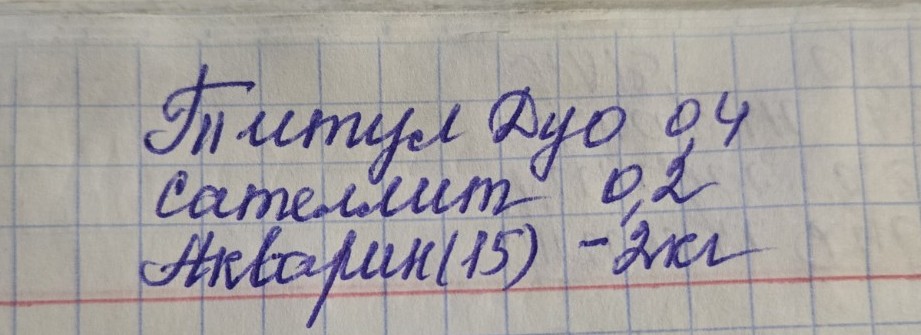 Титул Дуо 0,4
сателлит 0,2
Акварин(15) - 2кг